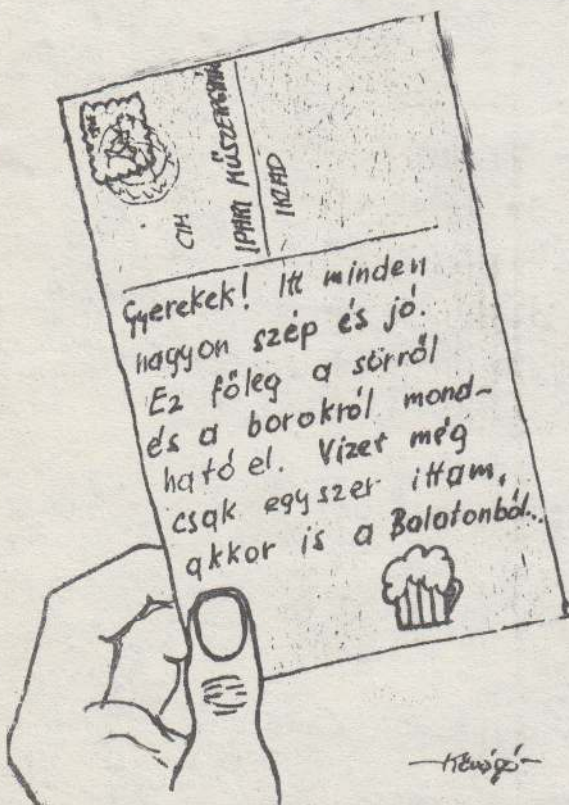 CÍM
IPARI MŰSZERGYÁR
IKLAD
Gyerekek! Itt minden
nagyon szép és jó.
Ez főleg a sörről
és a borokról mond-
ható el. Vizet még
csak egyszer ittam,
akkor is a Balatonból...